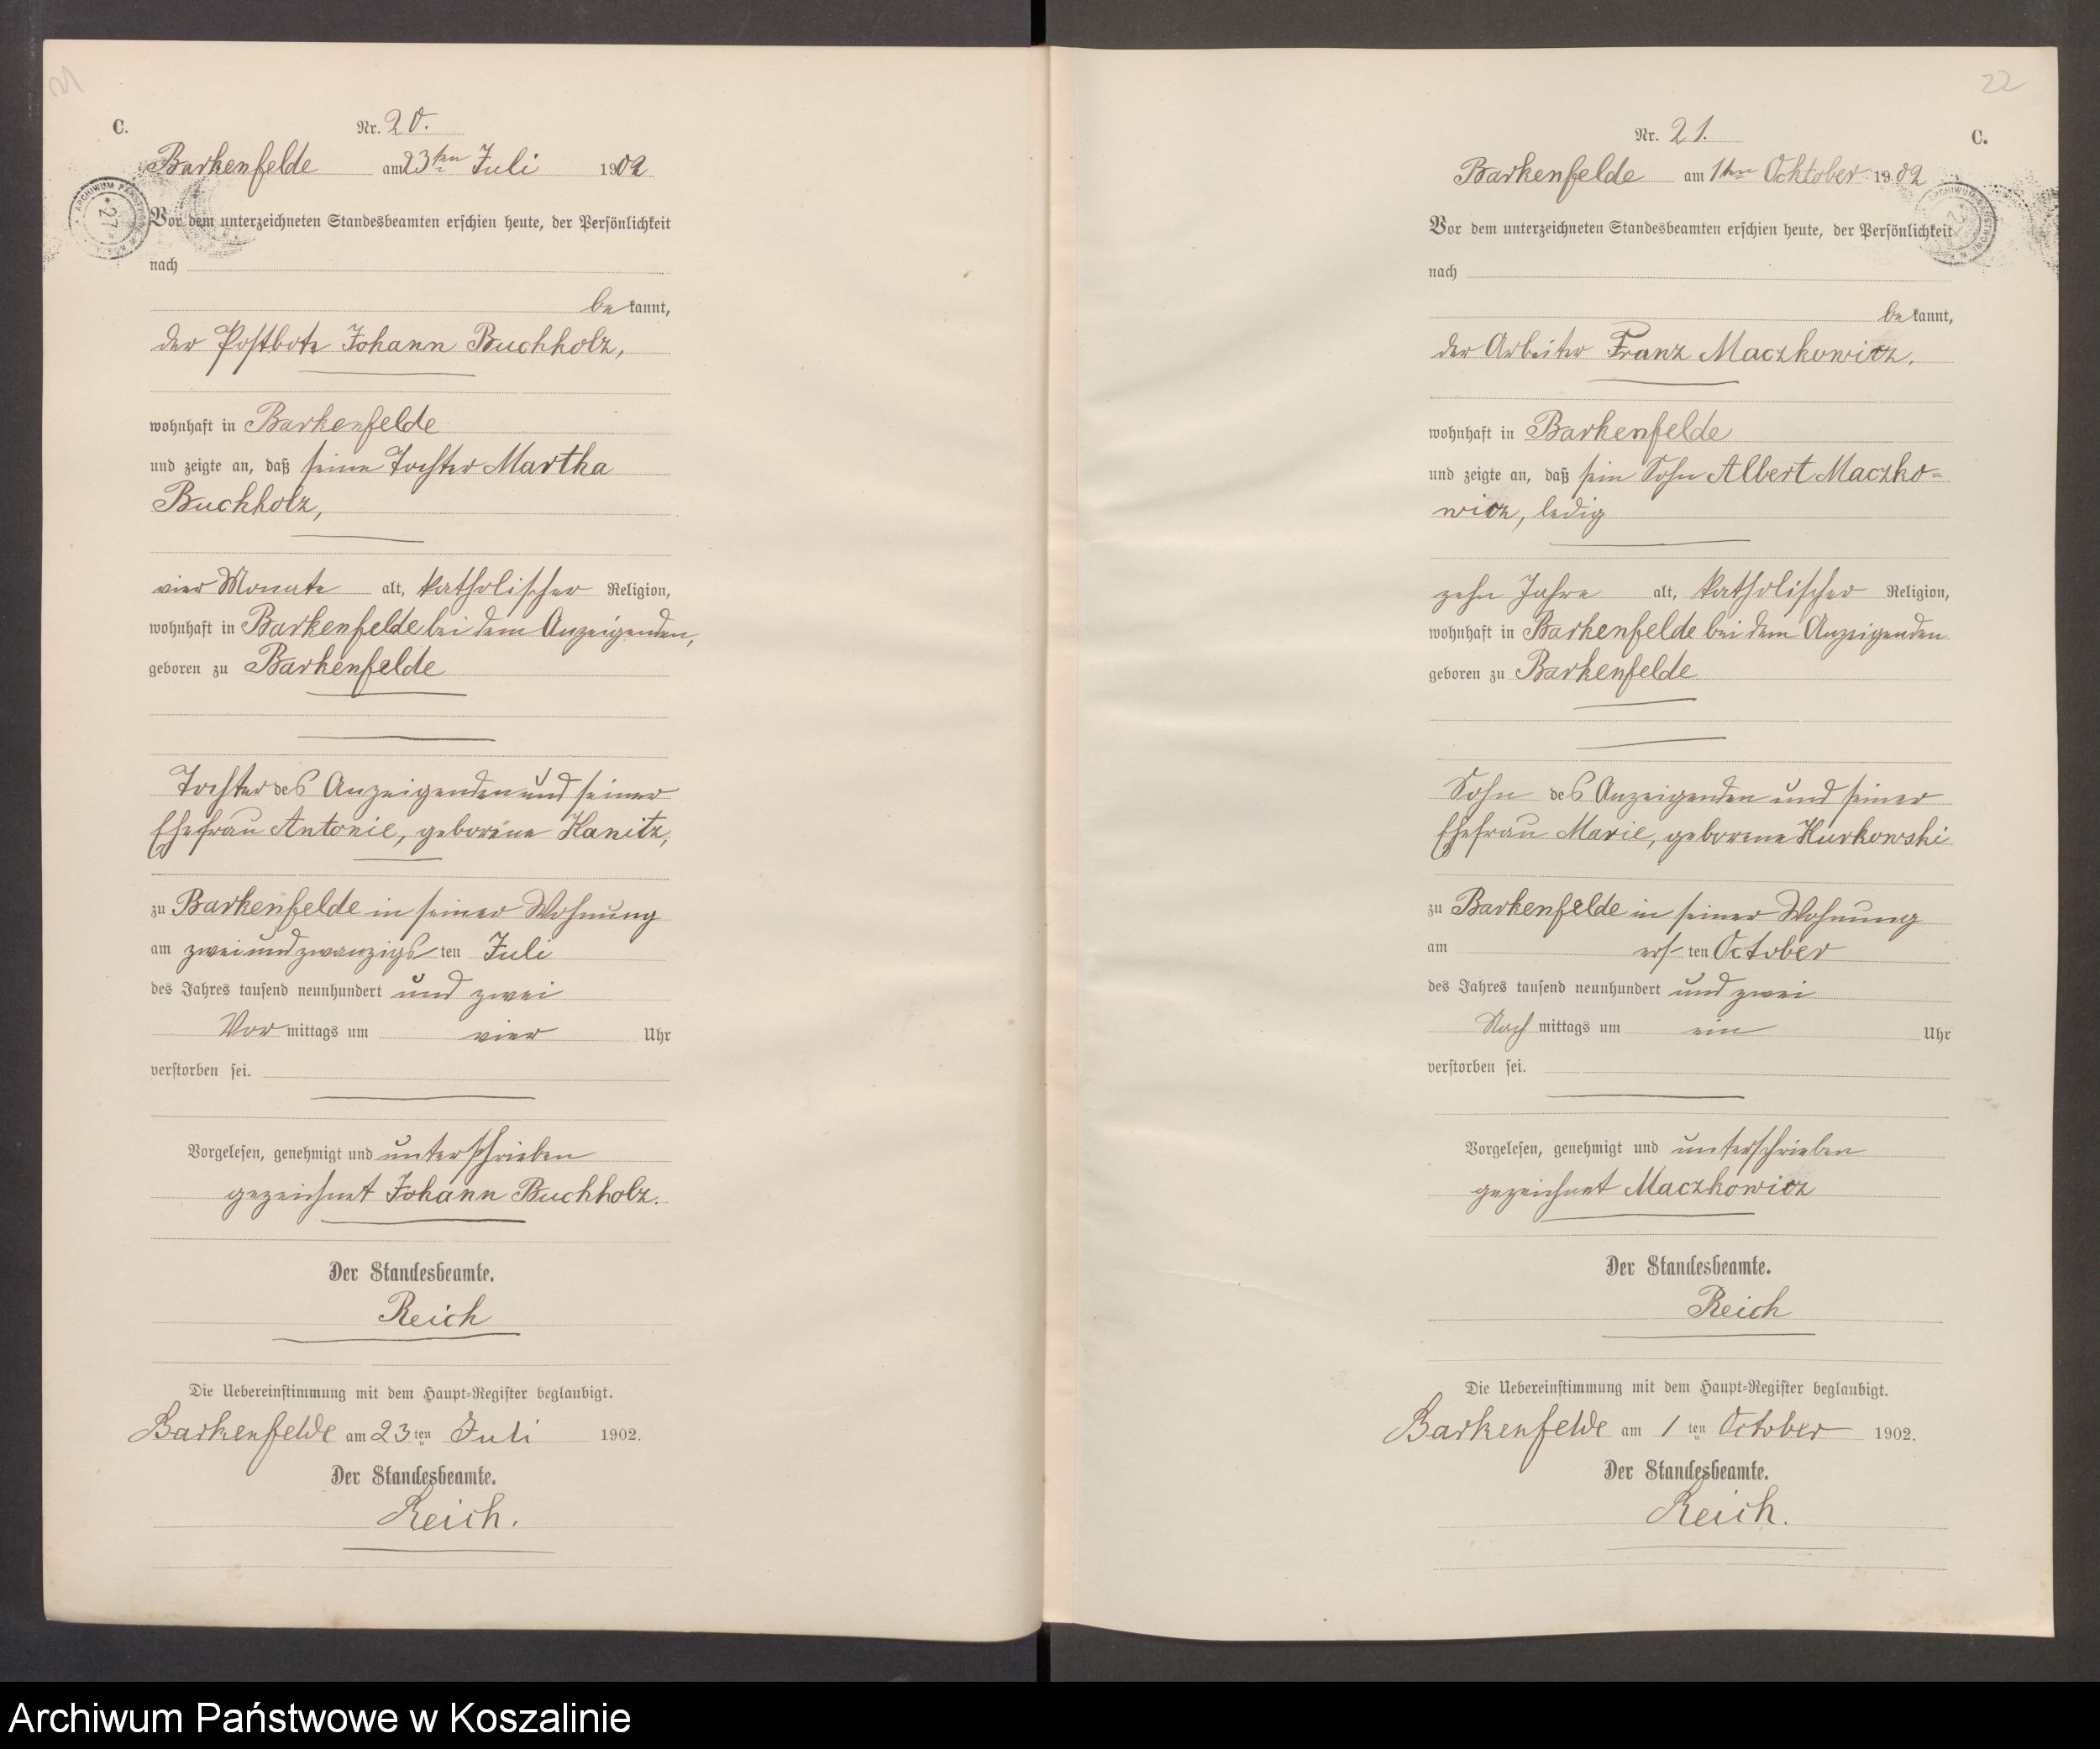 C.
Nr. 20.
Barkenfelde am 23ten Juli 1902
Vor dem unterzeichneten Standesbeamten erschien heute, der Persönlichkeit
nach
be kannt,
der Postbote Johann Buchholz,
wohnhaft in Barkenfelde
und zeigte an, daß seine Tochter Martha
Buchholz,
vier Monate alt, katholischer Religion,
wohnhaft in Barkenfelde bei dem Anzeigenden,
geboren zu Barkenfelde
Tochter des Anzeigenden und seiner
Ehefrau Antonie, geborene Kanitz,
zu Barkenfelde in seiner Wohnung
am zweiundzwanzigs ten Juli
des Jahres tausend neunhundert und zwei
Vor mittags um vier Uhr
verstorben sei.
Vorgelesen, genehmigt und unterschrieben
gezeichnet Johann Buchholz.
Der Standesbeamte.
Reich
Die Uebereinstimmung mit dem Haupt-Register beglaubigt.
Barkenfelde am 23 ten Juli 1902.
Der Standesbeamte.
Reich.
22
Nr. 21.
C.
Barkenfelde am 1ten Ocktober 1902
Vor dem unterzeichneten Standesbeamten erschien heute, der Persönlichkeit
nach
be kannt,
der Arbeiter Franz Maczkowicz,
wohnhaft in Barkenfelde
und zeigte an, daß sein Sohn Albert Maczko=
wicz, ledig
zehn Jahre alt, katholischer Religion,
wohnhaft in Barkenfelde bei dem Anzeigenden
geboren zu Barkenfelde
Sohn des Anzeigenden und seiner
Ehefrau Marie, geborene Kurkowski
zu Barkenfelde in seiner Wohnung
am ers ten October
des Jahres tausend neunhundert und zwei
Nach mittags um ein Uhr
verstorben sei.
Vorgelesen, genehmigt und unterschrieben
gezeichnet Maczkowicz
Der Standesbeamte.
Reich
Die Uebereinstimmung mit dem Haupt-Register beglaubigt.
Barkenfelde am 1 ten October 1902.
Der Standesbeamte.
Reich.
Archiwum Państwowe w Koszalinie